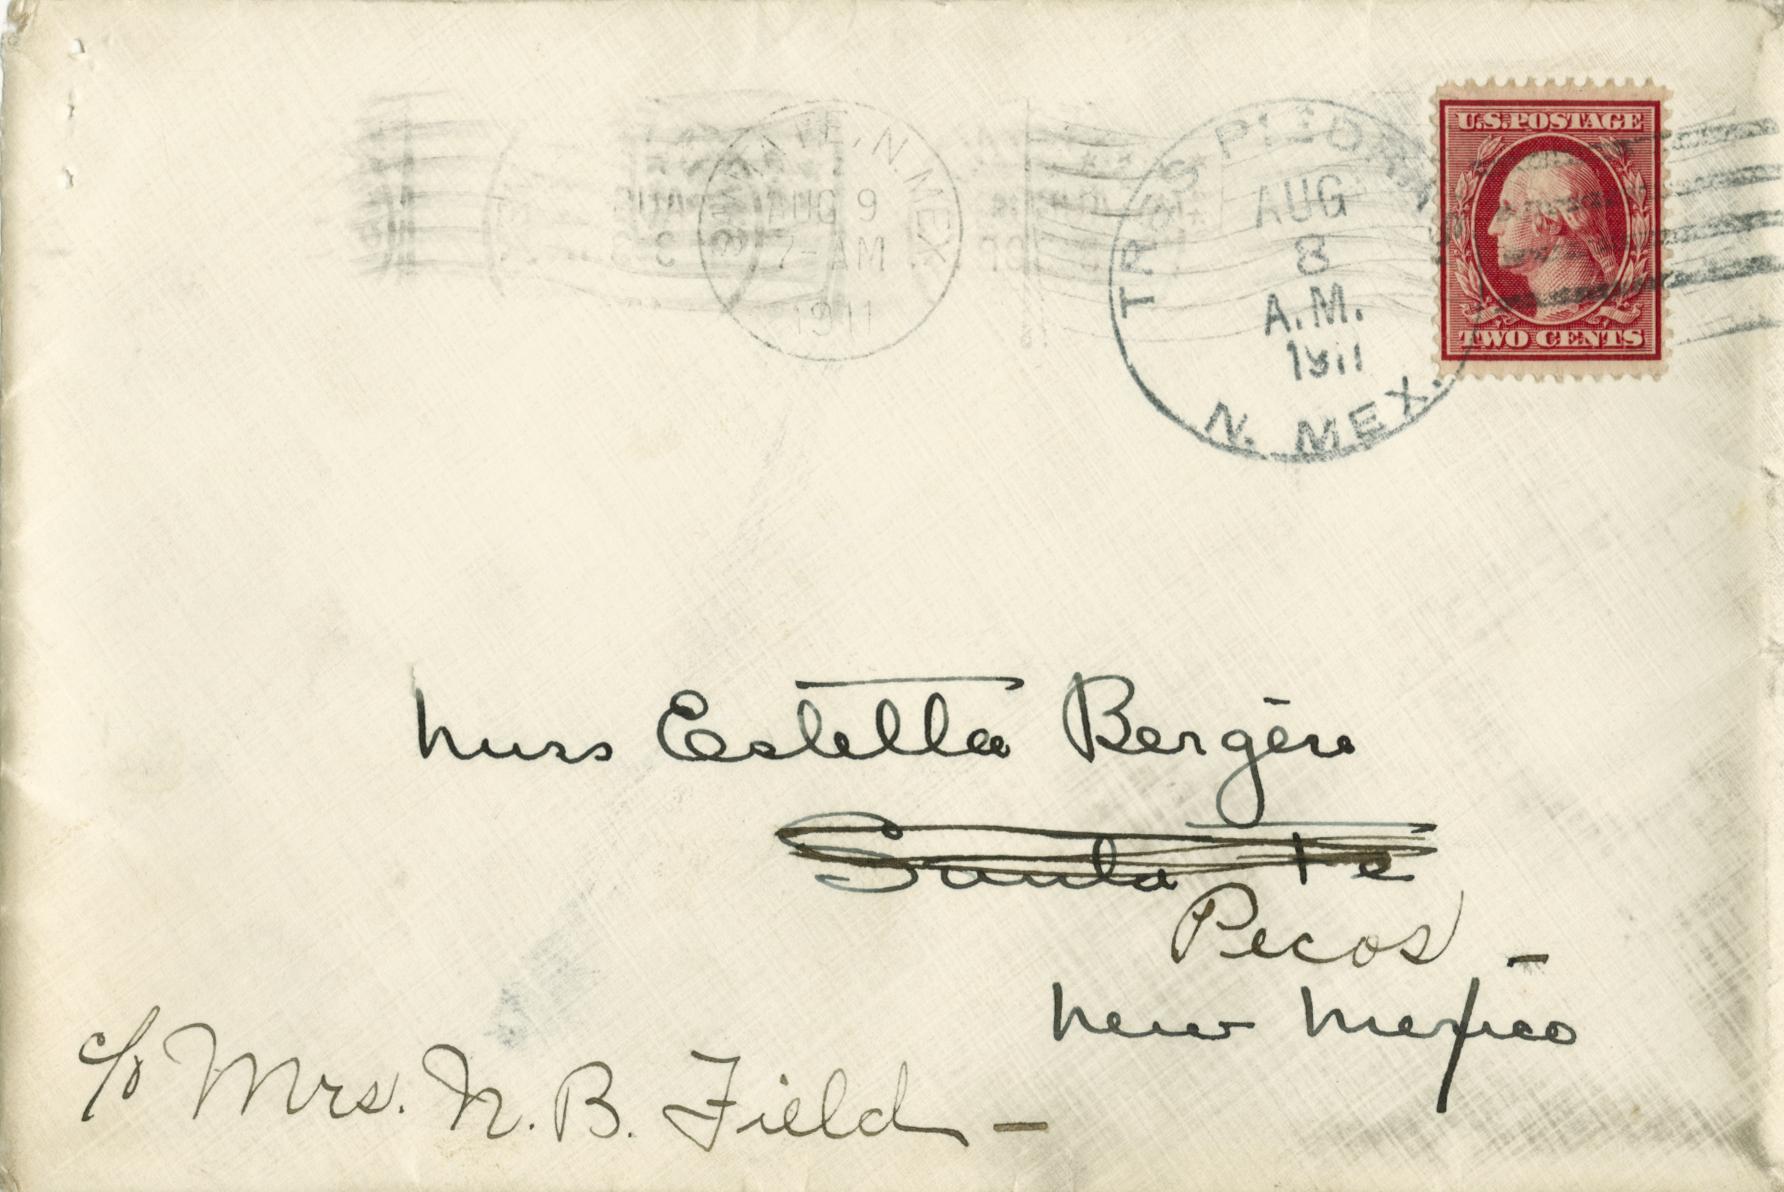 U.S. POSTAGE
TWO CENTS
TRES PIEDRAS
AUG
8
A.M.
1911
N. MEX.
N. MEX
AUG 9
7-AM
1911
Miss Estella Bergere
Santa Fe
Pecos
New Mexico
c/o Mrs. N. B. Field